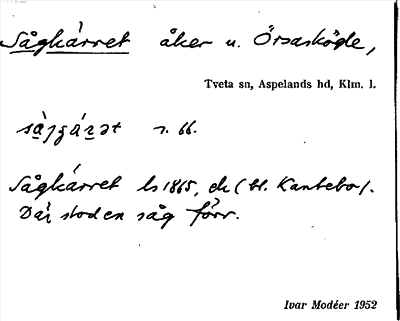 Sågkärret åker u. Örsaskögle,
Tveta sn, Aspelands hd, Klm. l.
s. 66.
Sågkärret ls 1865, ek (bl. Kantebo).
Där stod en såg förr.
Ivar Modéer 1952